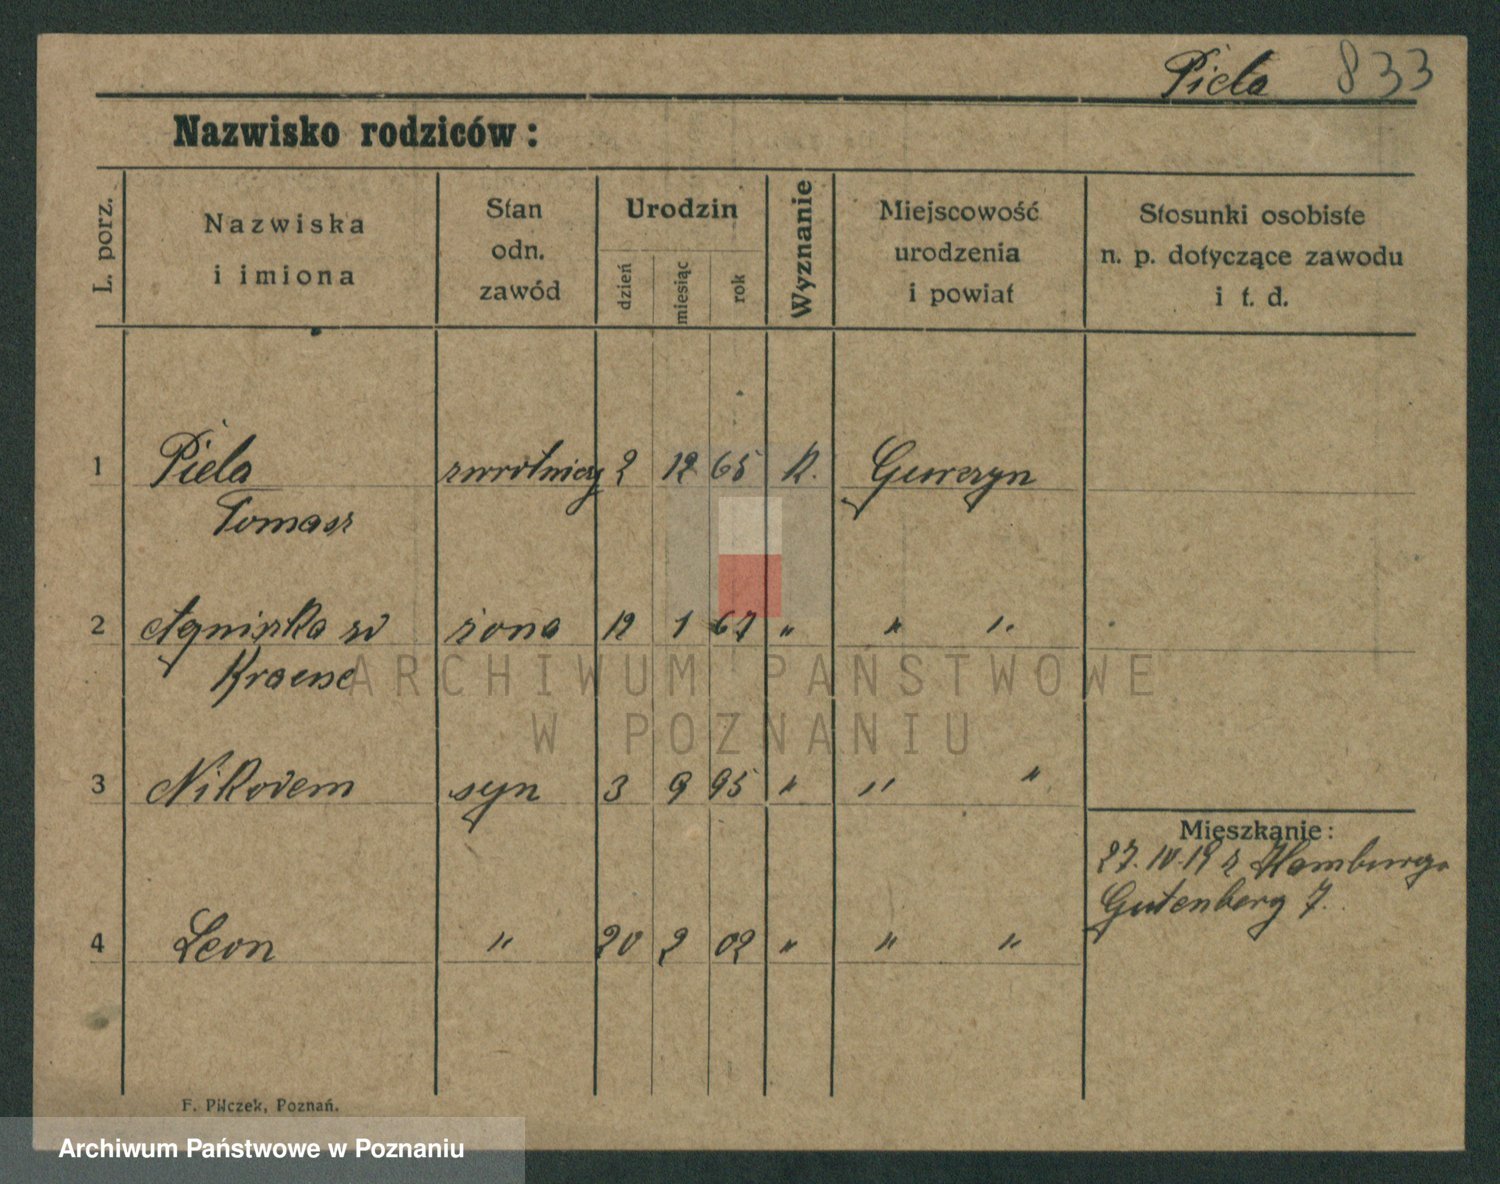 Piela 833
Nazwisko rodziców:
L. porz.
Nazwiska
i imiona
Stan
odn.
zawód
Urodzin
dzień
miesiąc
rok
Wyznanie
Miejscowość
urodzenia
i powiat
Stosunki osobiste
n. p. dotyczące zawodu
i t. d.
1 Piela zwrotniczy 2 12 65 K.
Tomasz
2 Agniszka zd żona 12 1 67 " " "
3 Nikodem syn 3 9 95 " " "
Mieszkanie:
27. IV. 19 z Hamburga
Gutenberg 7.
4 Leon " 20 2 02 " " "
ARCHIWUM PAŃSTWOWE
W POZNANIU
F. Pilczek, Poznań.
Archiwum Państwowe w Poznaniu